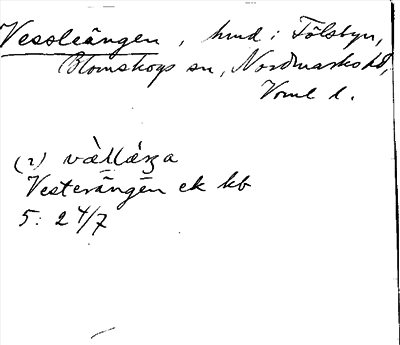 Vessleängen, hmd: Fölsbyn,
Blomskogs sn, Nordmarks hd,
Vrml l.
(2)
Vesterängen ek kb
5: 24/7